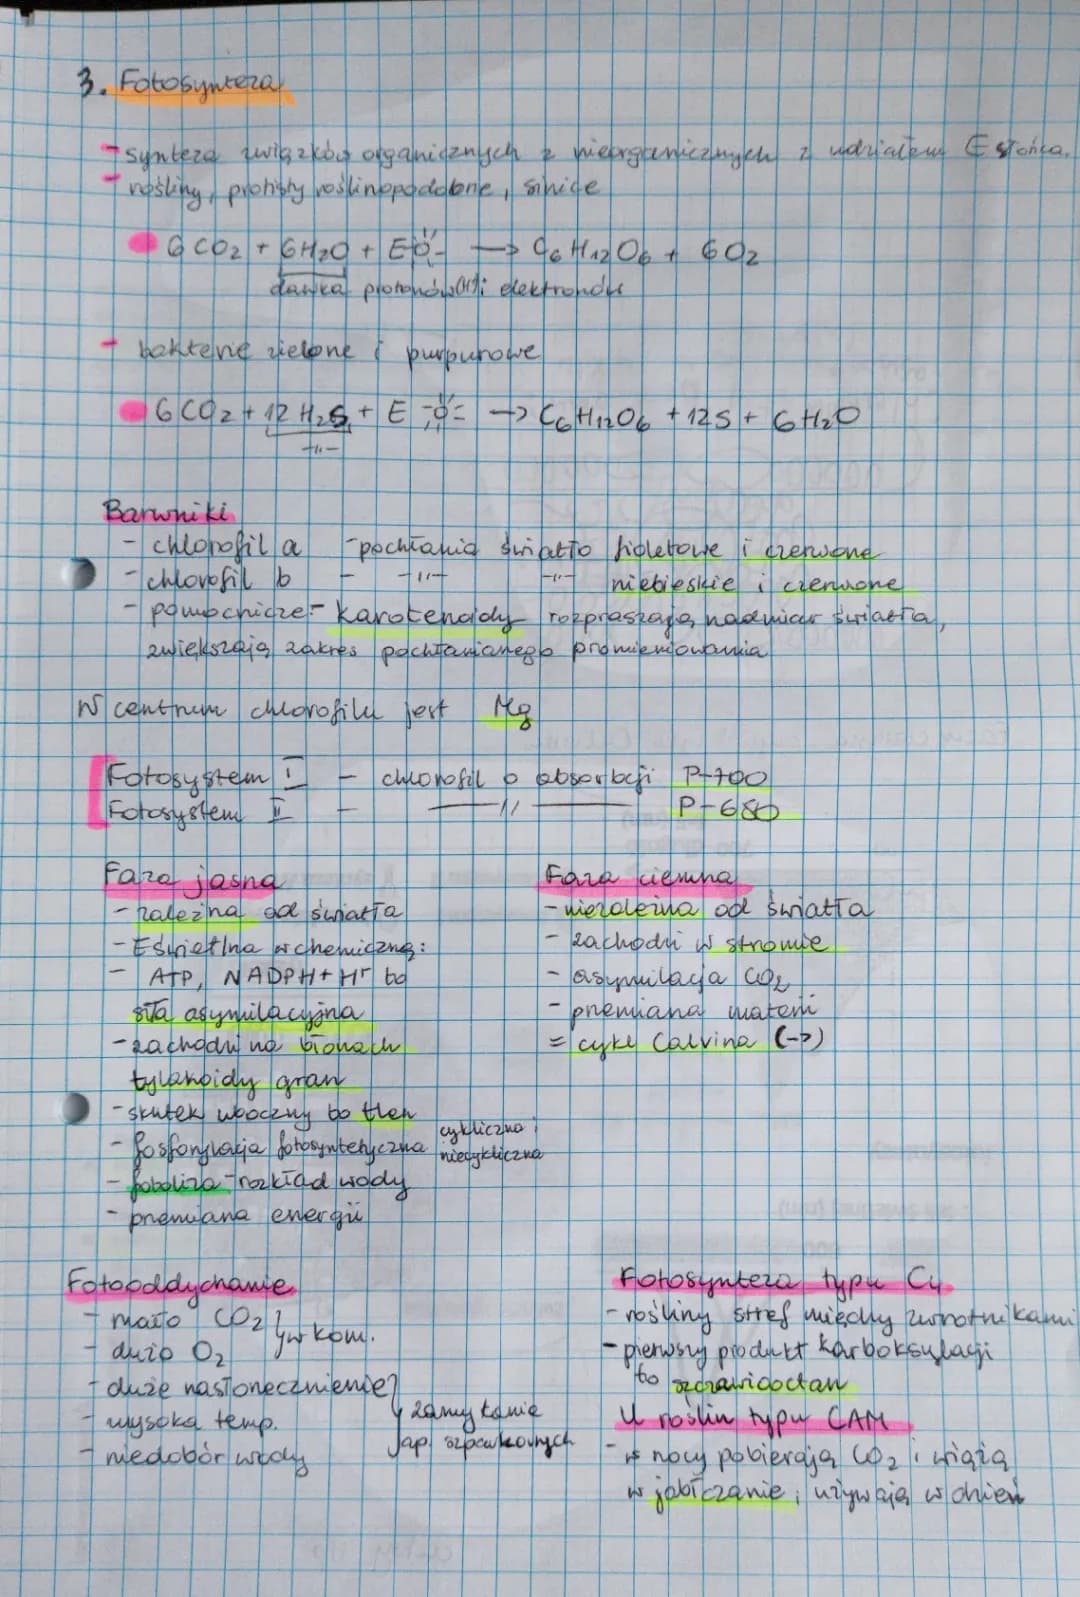 3. Fotosynteza
- synteza związków organicznych z nieorganicznych z udziałem E słońca.
- rośliny, protisty roślinopodobne, sinice
6 CO2 + 6H2O + E → C6H12O6 + 6O2
dawka protonów (H+) i elektronów
- bakterie zielone i purpurowe
6 CO2 + 12 H2S + E → C6H12O6 + 12S + 6H2O
-11-
Barwniki
- chlorofil a - pochłania światło fioletowe i czerwone
- chlorofil b - -11- -11- niebieskie i czerwone
- pomocnicze - karotenoidy rozpraszają nadmiar światła,
zwiększają zakres pochłanianego promieniowania
W centrum chlorofilu jest Mg
Fotosystem I - chlorofil o absorbcji P-700
Fotosystem II - —11— P-680
Faza jasna
- zależna od światła
- E świetlna w chemiczną:
- ATP, NADPH+H+ to
siła asymilacyjna
- zachodzi na błonach
tylakoidy gran
- skutek uboczny to tlen
- fosforylacja fotosyntetyczna cykliczna i
niecykliczna
- fotoliza - rozkład wody
- przemiana energii
Faza ciemna
- niezależna od światła
- zachodzi w stromie
- asymilacja CO2
- przemiana materii
= cykl Calvina (->)
Fotooddychanie
- mało CO2 } w kom.
- dużo O2
- duże nasłonecznienie
- wysoka temp. } zamykanie
- niedobór wody ap. szparkowych
Fotosynteza typu C4
- rośliny stref między zwrotnikami
- pierwszy produkt karboksylacji
to szczawiooctan
U roślin typu CAM
- w nocy pobierają CO2 i wiążą
w jabłczanie, używają w dzień